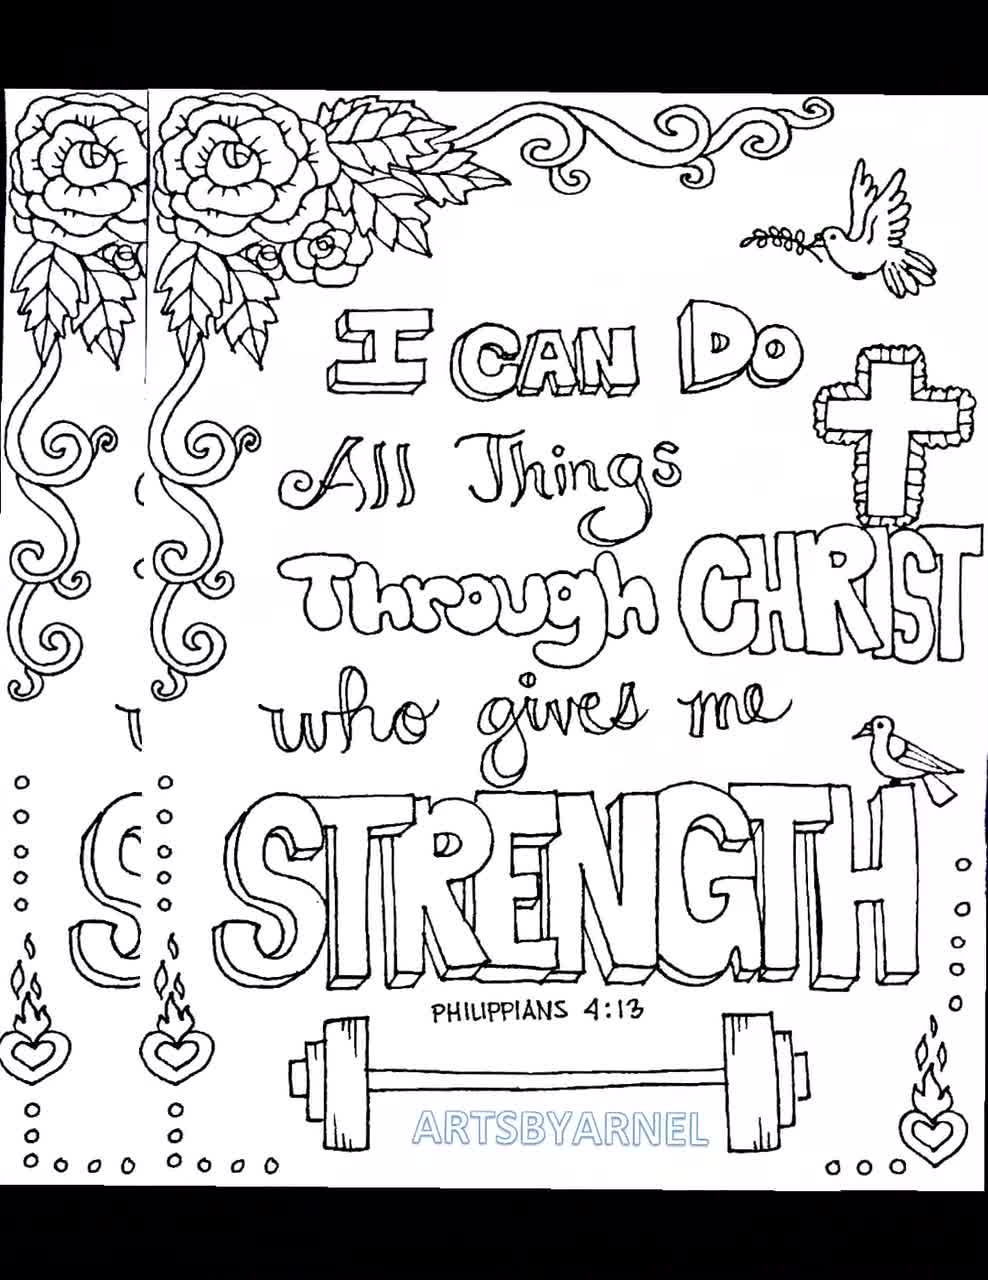 I CAN DO
All Things
Through CHRIST
who gives me
STRENGTH
PHILIPPIANS 4:13
ARTSBYARNEL